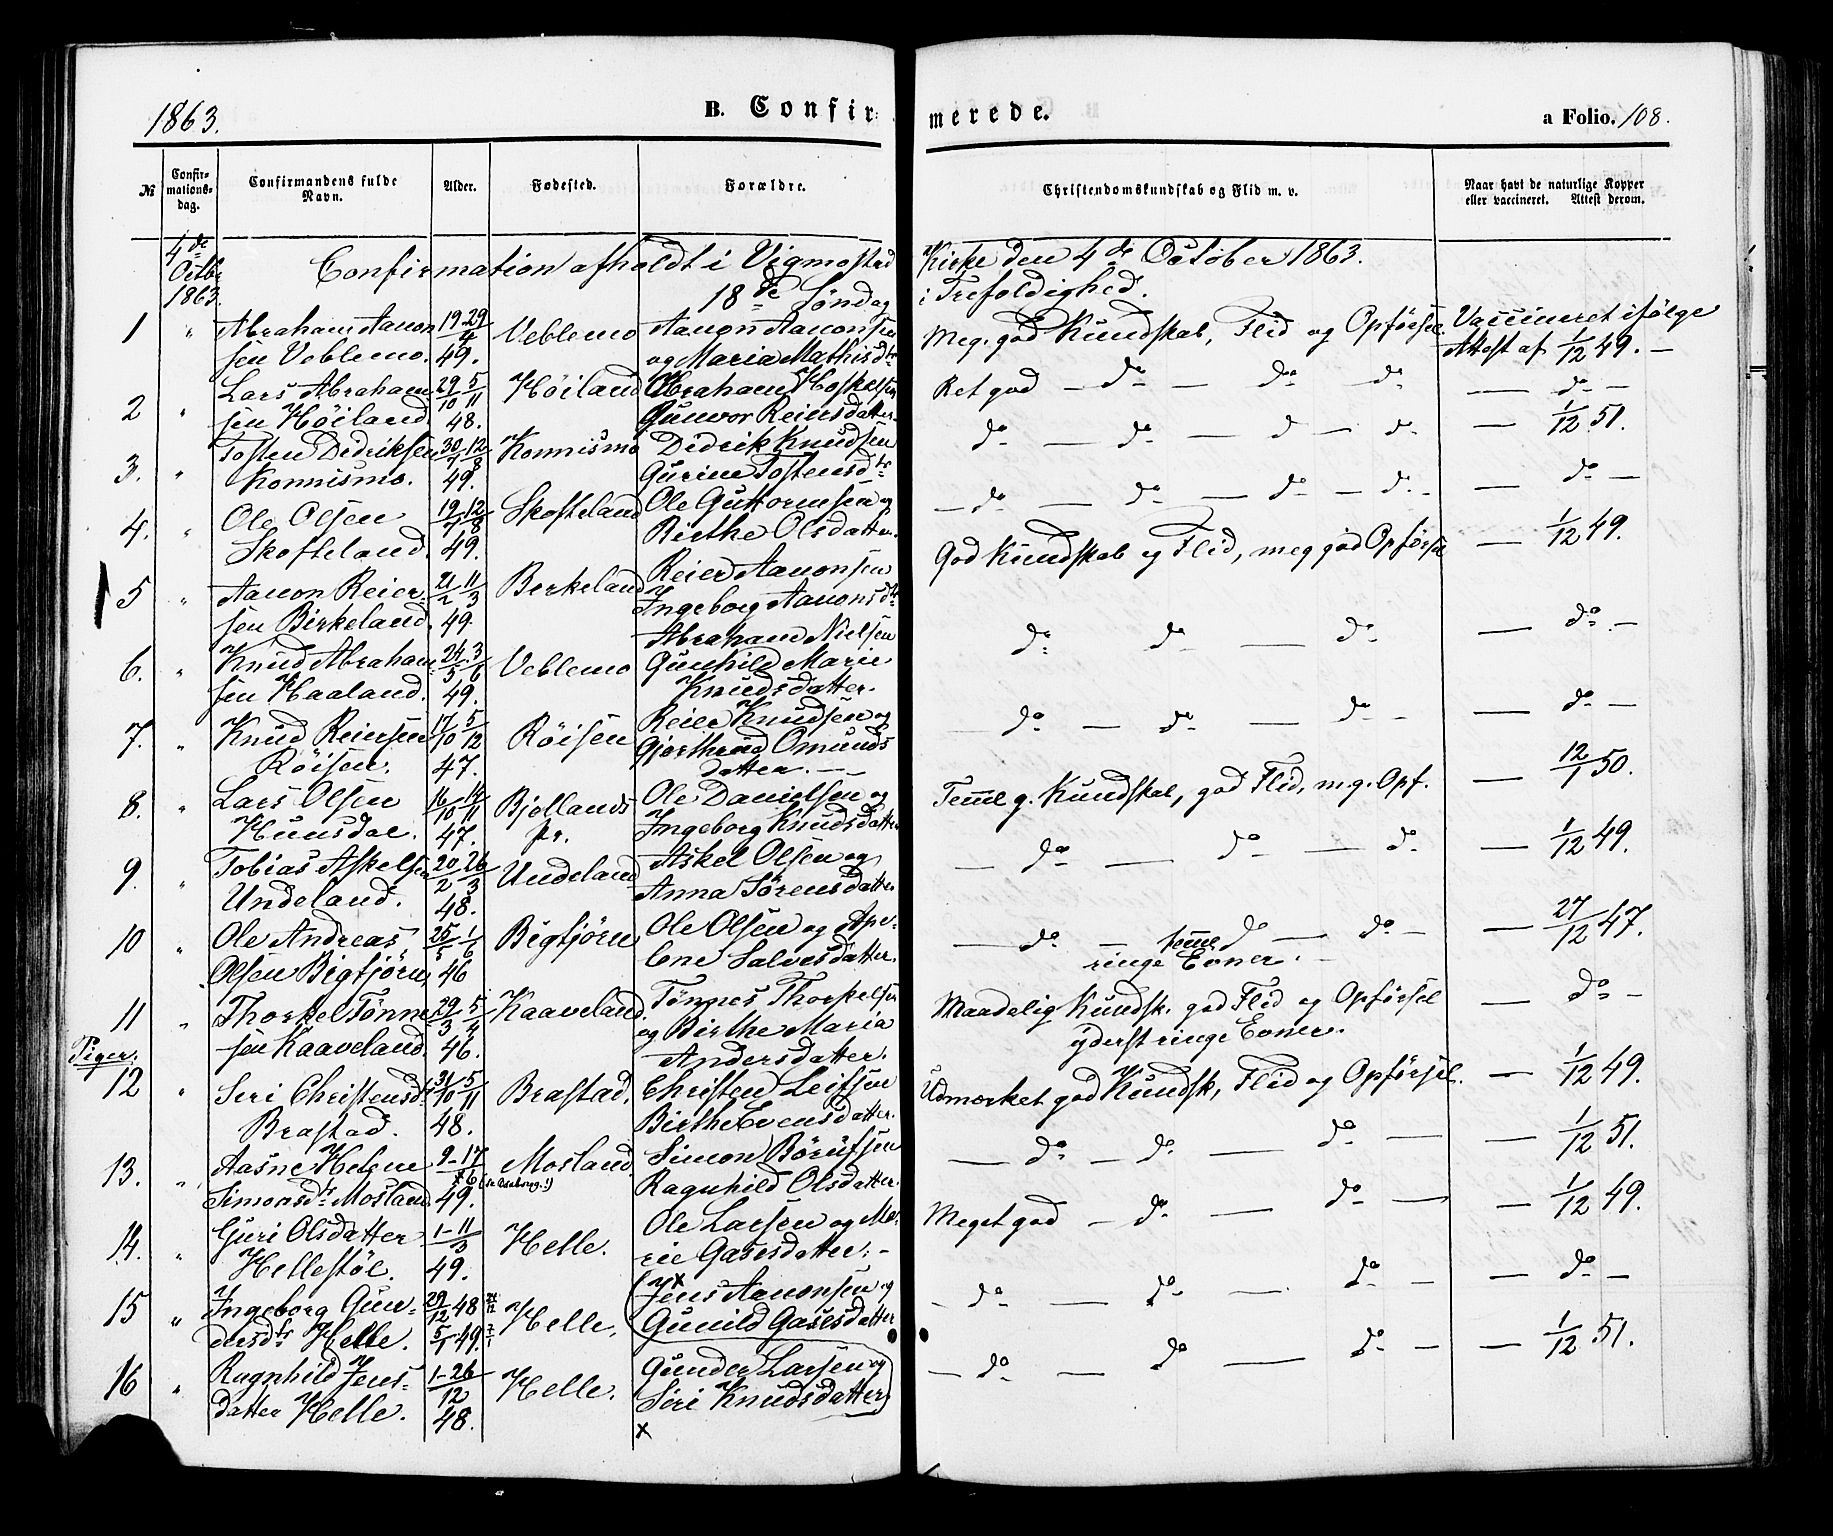 1863.
B. Confir-
merede.
a Folio. 108.
№
Confirmations-
dag.
Confirmandens fulde
Navn.
Alder.
Fødested.
Forældre.
Christendomskundskab og Flid m. v.
Naar havt de naturlige Kopper
eller vaccineret. Attest derom.
4de
Octbr
1863.
Confirmation afholdt i Vigmostad Kirke den 4de October 1863.
18de Søndag i Trefoldighed.
1 " Abraham Aanon- 19 29/4 Veblemo Aanon Aanonsen Meg. god Kundskab, Flid og Opførsel. Vaccineret ifølge
sen Veblemo. 49. og Maria Mathisdtr Attest af 1/12 49. —
2 " Lars Abraham- 29/10 5/11 Høiland Abraham Hoskelsen Ret god — do — do do — do —
sen Høiland. 48. Gunvor Reiersdatter.
3. " Tosten Didriksen 30/7 12/8 Konnismo Didrik Knudsen do — do — d — do — 1/12 51.
Konnismo. 49. Gurine Tostensdtr
4. " Ole Olsen 19/7 12/8 Skofteland Ole Guttormsen og — do — do — do — do. — — do —
Skofteland. 49. Birthe Olsdatter.
5 " Aanon Reier- 21/2 11/3 Berkeland Reier Aanonsen God Kundskab og Flid, meg god Opførsel — 1/12 49.
sen Birkeland. 49. Ingeborg Aanonsdtr
6. " Knud Abraham- 24/5 3/6 Veblemo Abraham Nielsen do do — do — do. —
sen Haaland. 49. Gunhild Marie
Knudsdatter.
7. " Knud Reiersen 17/10 5/12 Røisen Reier Knudsen og — do — do — do — — do —
Røisen. 47. Gjærthrud Omunds
datter. —
8. " Lars Olsen 16/10 14/11 Bjellands Ole Danielsen og Temel g. Kundskab, god Flid, m. g. Opf. — 12/1 50.
Hunsdal. 47. pr. Ingeborg Knudsdatter
9. " Tobias Askelsen 20/2 26/3 Undeland Askel Olsen og — do — do — do — 1/12 49.
Undeland. 48. Anna Sørensdatter
10 " Ole Andreas 25/5 1/6 Bigtjørn Ole Olsen og Ape- — do — do — do — — 27/12 47.
Olsen Bigtjørn, 46 lene Salvesdatter. temel
ringe Evner. —
11 " Thorkel Tønne- 29/3 5/4 Kaaveland Tønnes Thorkelsen Maadelig Kundsk. god Flid og Opførsel — do —
sen Kaaveland. 46. og Birthe Maria yderst ringe Evner.
Andersdatter.
Piger.
12 " Seri Christensdtr 31/10 5/11 Brastad. Christen Leifsen Udmærket god Kundsk, Flid og Opførsel. — 1/12 49.
Brastad. 48. Birthe Evensdatter.
13. " Aasne Helene 9–17/6 Mosland Simon Børufsen — do — do — do — — 1/12 51.
Simonsdtr Mosland 49. Ragnhild Olsdatter.
14. " Guri Olsdatter 1–11/3 Helle. Ole Larsen og Ma- Meget god — do — do — — 1/12 49.
Hellestøl. 49. rie Gasesdatter. —
15 " Ingeborg Gun- 29/12 48 Helle, x Jens Aanonsen og — do — do — do — — do —
dersdtr Helle. 5/1 49. Gunild Gasesdatter
16 " Ragnhild Jens- 1–26/12 Helle. Gunder Larsen og — do — do — do — — 1/12 51.
datter Helle. 48. Siri Knudsdatter
x